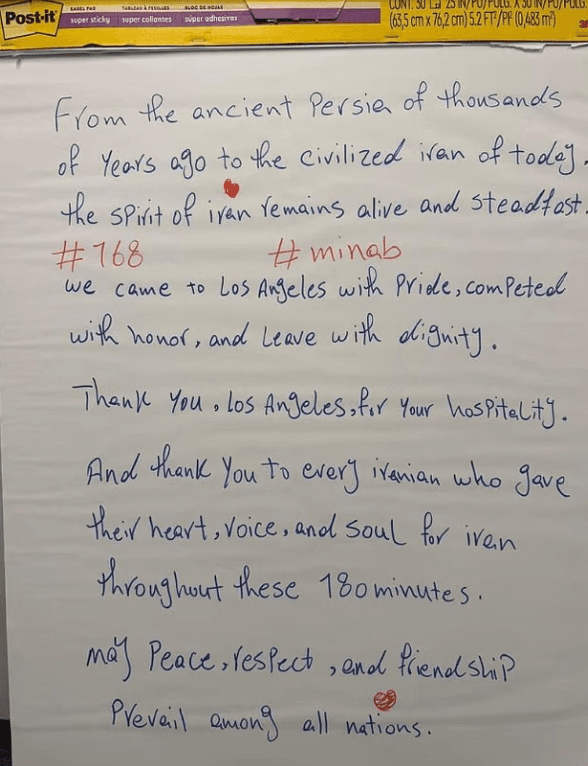 Post-it
EASEL PAD TABLEAU À FEUILLES BLOC DE HOJAS
super sticky super collantes súper adhesivas
(63,5 cm x 76,2 cm) 5.2 FT²/PI² (0,483 m²)
From the ancient Persia of thousands
of Years ago to the civilized iran of today,
the spirit of iran remains alive and steadfast.
#168 #minab
we came to Los Angeles with Pride, competed
with honor, and Leave with dignity.
Thank you, Los Angeles, for your hospitality.
And thank you to every iranian who gave
their heart, voice, and soul for iran
throughout these 180 minutes.
may Peace, respect, and friendship
Prevail among all nations.